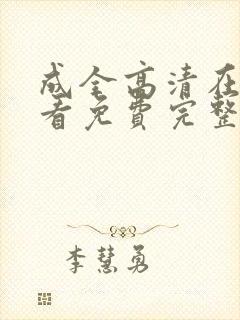 成全高清在
看免费完整
李慧勇